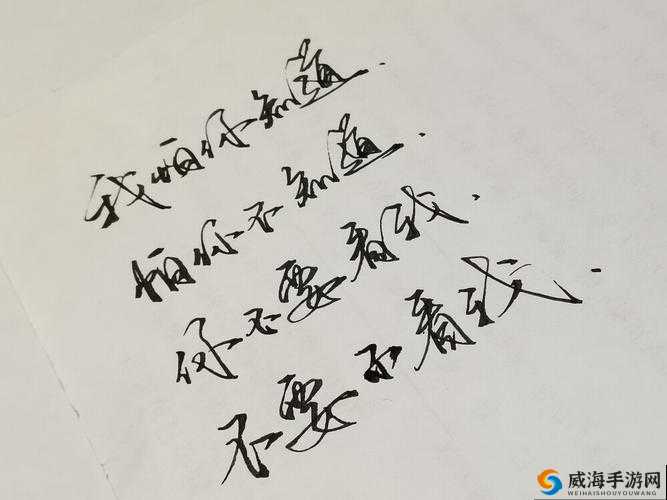 我怕你知道.
怕你不知道.
你不要看我.
不要不看我.
威海手游网
WEIHAISHOUYOUWANG